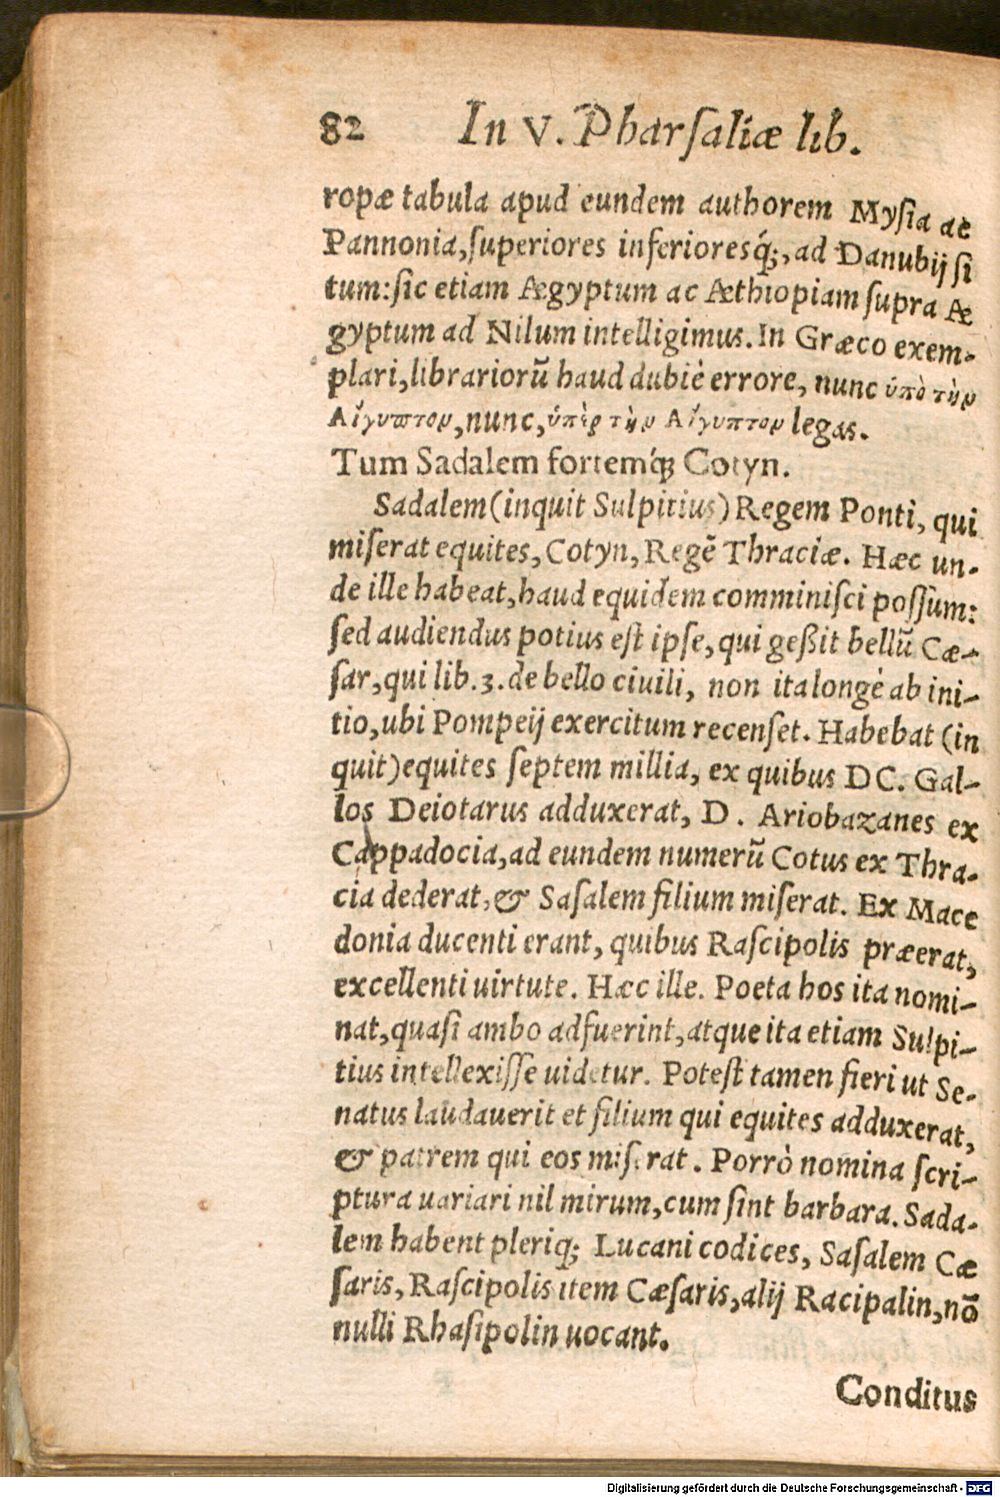 82 In V. Pharſaliæ lib.
ropæ tabula apud eundem authorem Myſia ac
Pannonia, ſuperiores inferioresq́;, ad Danubij ſi
tum: ſic etiam Ægyptum ac Æthiopiam ſupra Æ
gyptum ad Nilum intelligimus. In Græco exem-
plari, librariorũ haud dubiè errore, nunc ὑπὸ τὴν
Αἴγυπτον, nunc, ὑπὲρ τὴν Αἴγυπτον legas.
Tum Sadalem fortemq́; Cotyn.
Sadalem (inquit Sulpitius) Regem Ponti, qui
miſerat equites, Cotyn, Regẽ Thraciæ. Hæc un-
de ille habeat, haud equidem comminiſci poſſum:
ſed audiendus potius eſt ipſe, qui geßit bellũ Cæ-
ſar, qui lib. 3. de bello ciuili, non ita longè ab ini-
tio, ubi Pompeij exercitum recenſet. Habebat (in
quit) equites ſeptem millia, ex quibus DC. Gal-
los Deiotarus adduxerat, D. Ariobazanes ex
Cappadocia, ad eundem numerũ Cotus ex Thra-
cia dederat, & Saſalem filium miſerat. Ex Mace
donia ducenti erant, quibus Raſcipolis præerat,
excellenti uirtute. Hæc ille. Poeta hos ita nomi-
nat, quaſi ambo adfuerint, atque ita etiam Sulpi-
tius intellexiſſe uidetur. Poteſt tamen fieri ut Se-
natus laudauerit et filium qui equites adduxerat,
& patrem qui eos miſerat. Porrò nomina ſcri-
ptura uariari nil mirum, cum ſint barbara. Sada-
lem habent pleriq; Lucani codices, Saſalem Cæ
ſaris, Raſcipolis item Cæſaris, alij Racipalin, nõ
nulli Rhaſipolin uocant.
Conditus
Digitalisierung gefördert durch die Deutsche Forschungsgemeinschaft - DFG